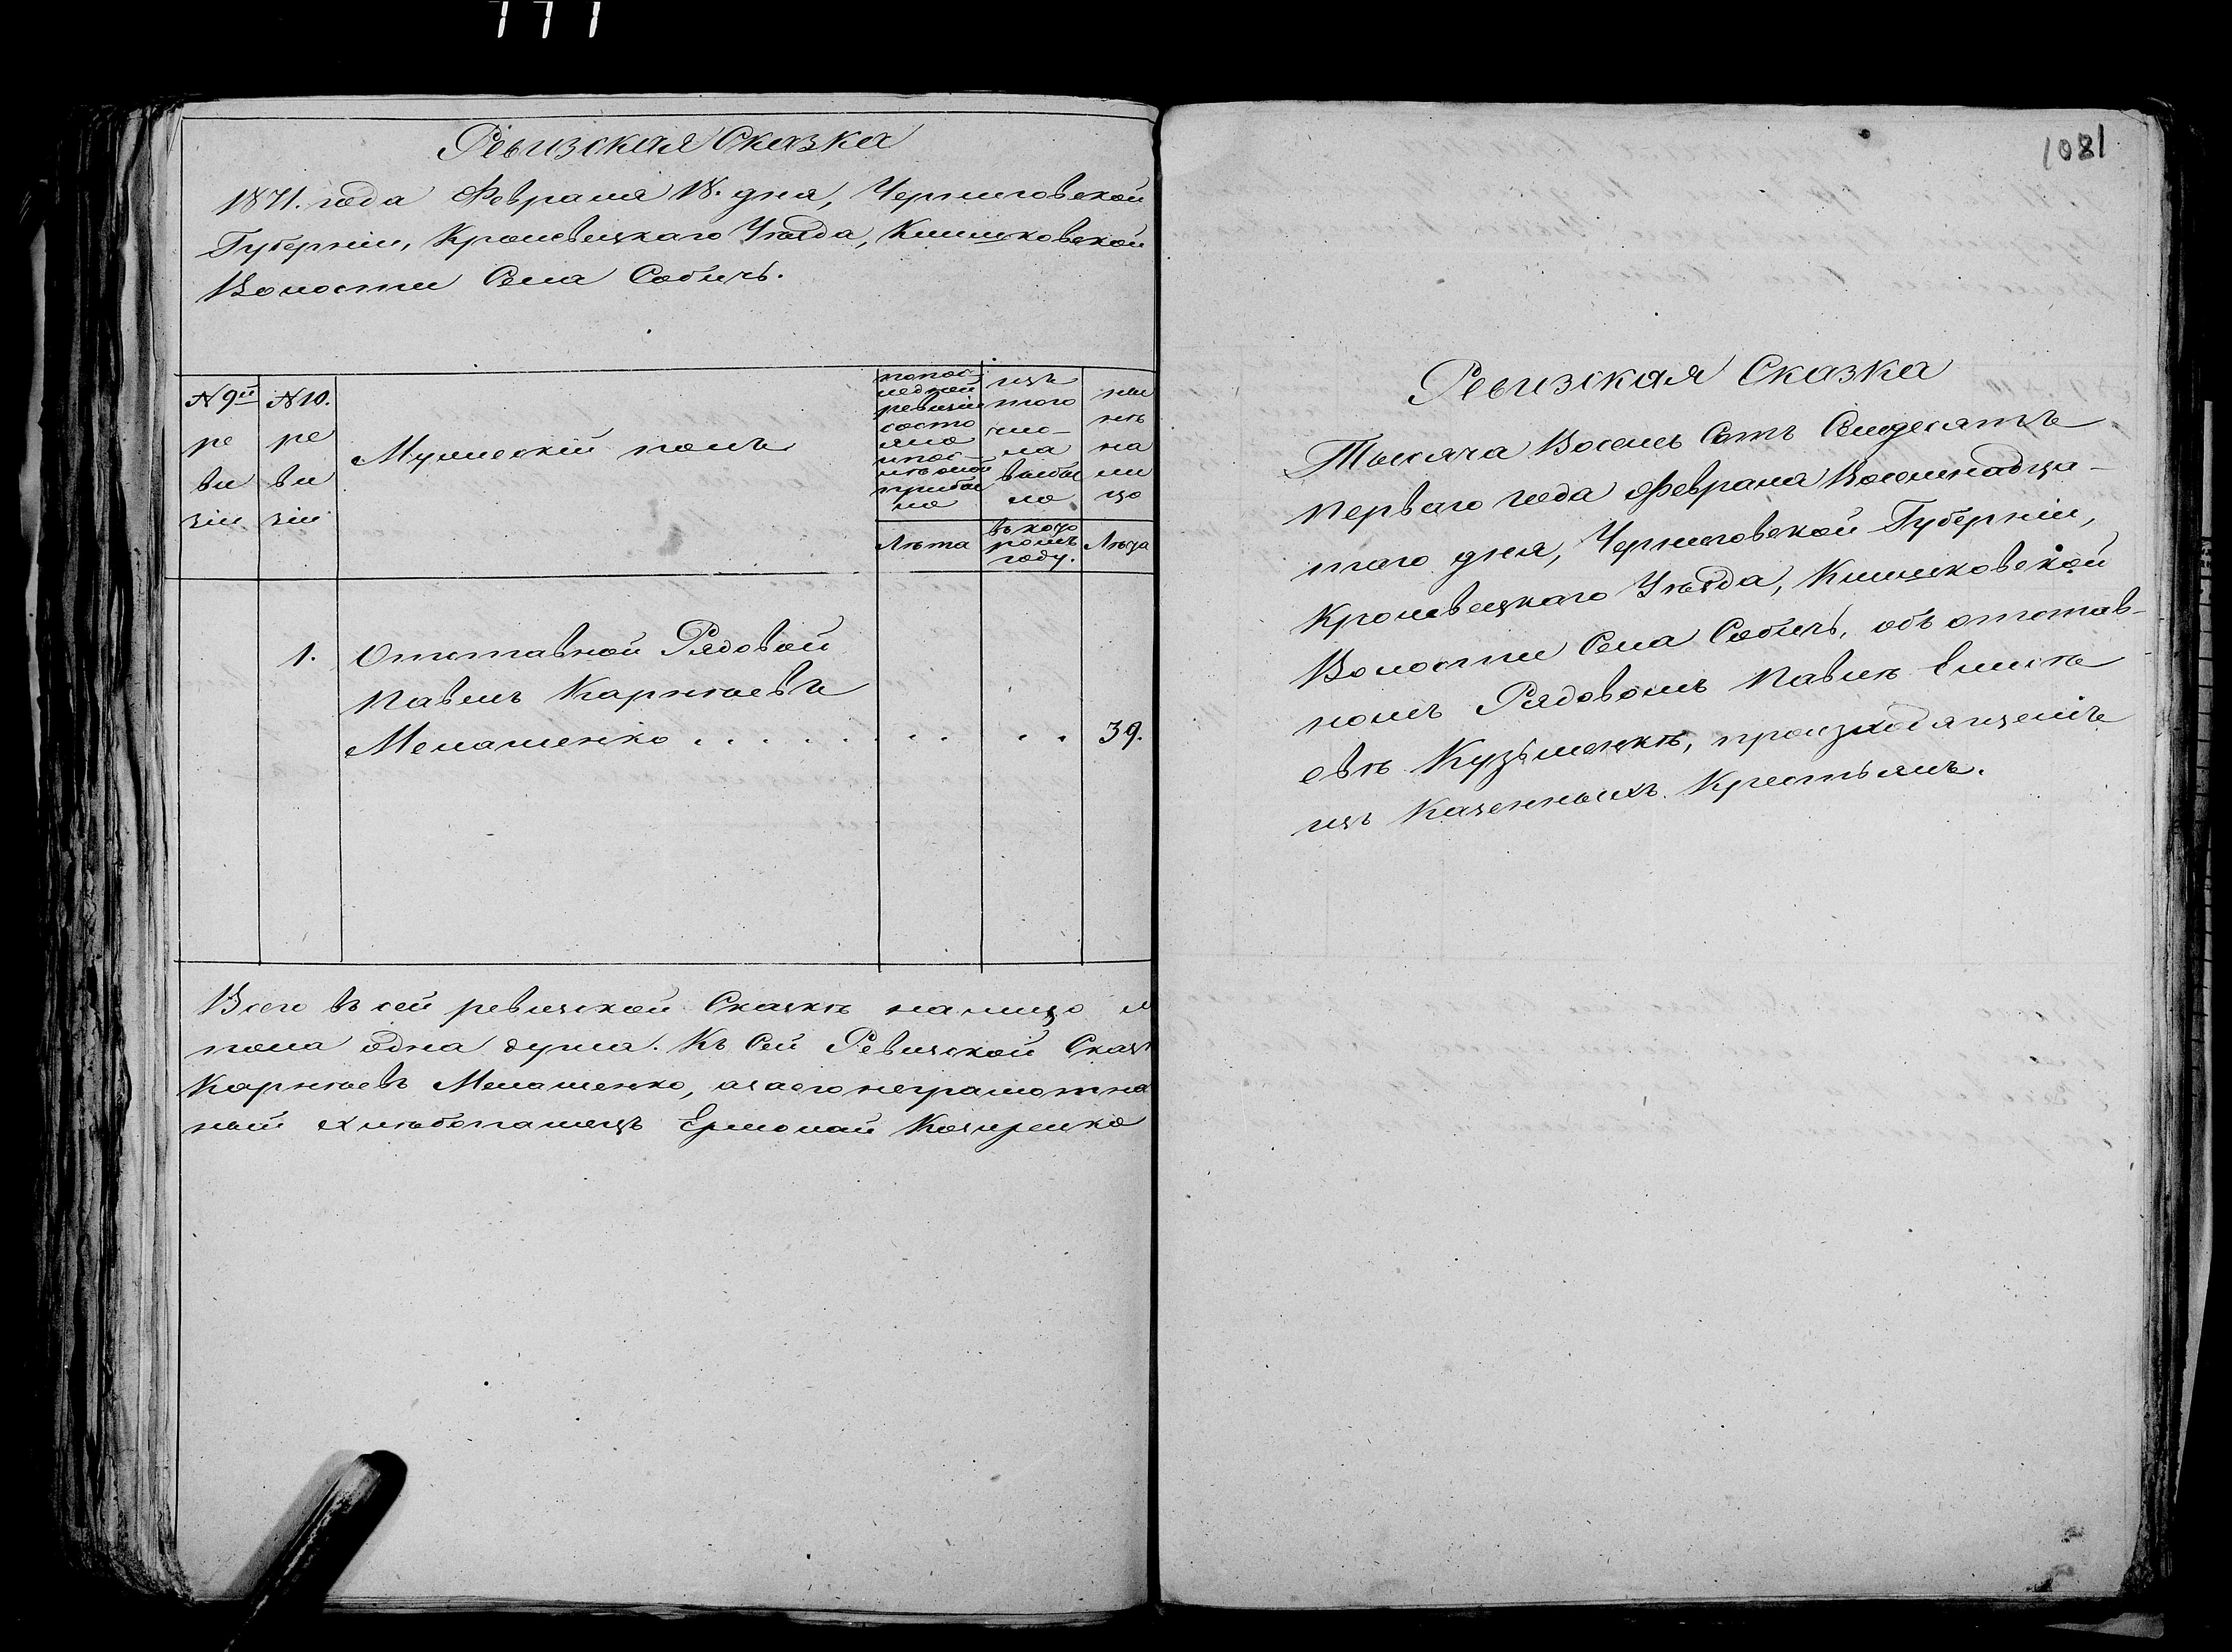 777
Ревизская Сказка
1871. года Февраля 18. дня, Черниговской
Губернiи, Кролевецкаго Уѣзда, Клишковской
Волости Села Собичь.
№ 9й ре визiи
№ 10. ре визiи
Мужескiй полъ
по послѣдней ревизiи состояло и послѣ оной прибыло
Лѣта
изъ того числа выбыло
въ которомъ году.
нынѣ на лицо
Лѣта
1. Отставной Рядовой
Павелъ Карнѣевъ
Мелашенко . . . . . . . . . . . 39.
Всего въ сей ревизской Сказкѣ на лицо м
пола одна душа. Къ сей Ревизской Сказк
Карнѣевъ Мелашенко, а за его неграмотна
ный хлѣбопашецъ Ермолай
1081
Ревизская Сказка
Тысяча Восемь Сотъ Семдесятъ
перваго года Февраля Восемнадца-
таго дня, Черниговской Губернiи,
Кролевецкаго Уѣзда, Клишковской
Волости Села Собичь, объ отстав-
номъ Рядовомъ Павлѣ Елисѣ
евѣ Кузьменкѣ, произходящемъ
изъ Казенныхъ Крестьянъ.